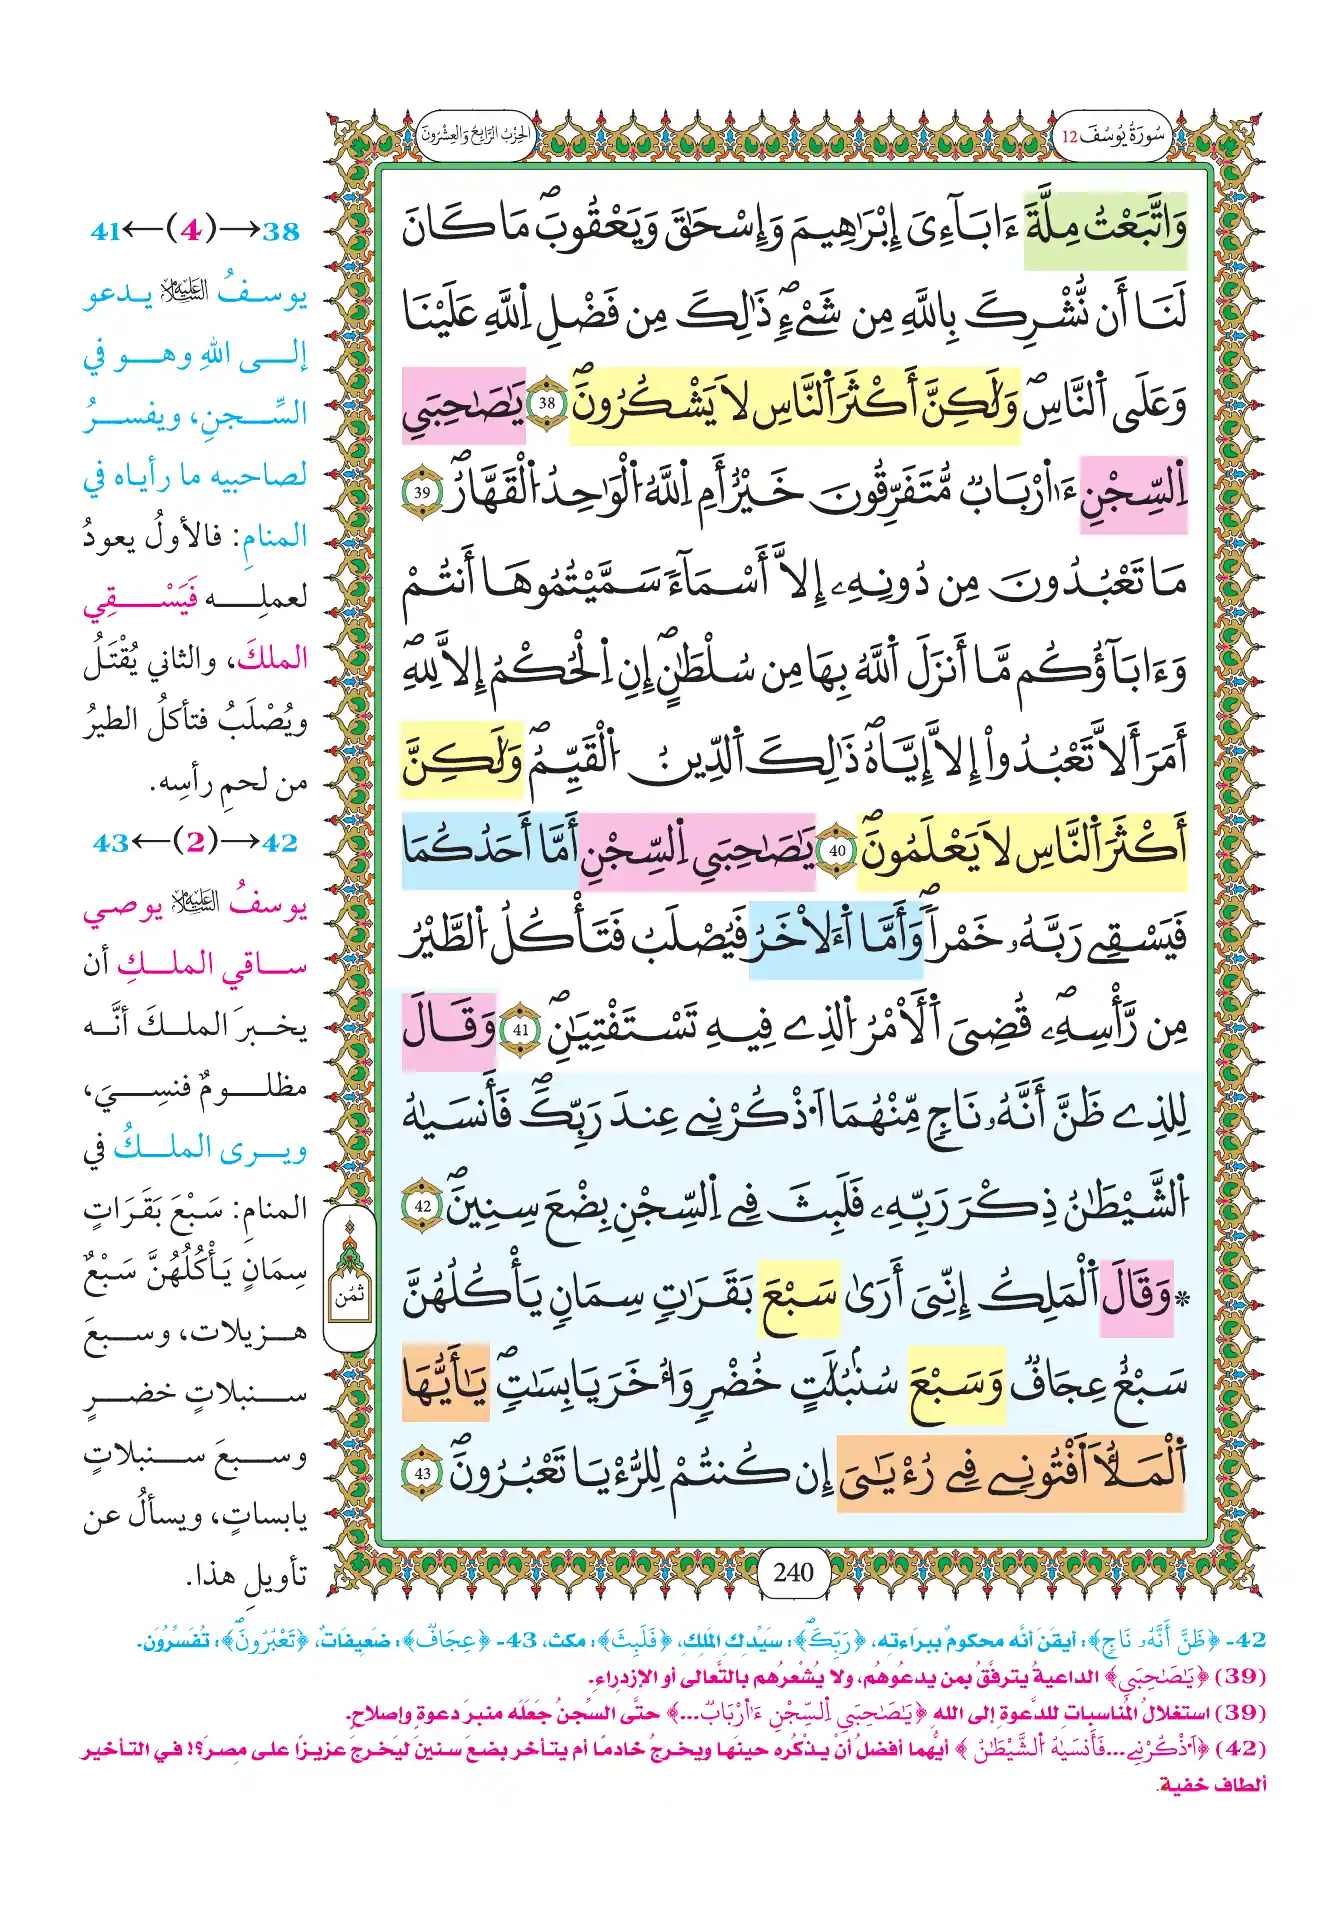 سُورَةُ يُوسُفَ 12
الحِزْبُ الرَّابِعُ وَالعِشْرُونَ
وَاتَّبَعْتُ مِلَّةَ ءَابَآءِىَ إِبْرَٰهِيمَ وَإِسْحَٰقَ وَيَعْقُوبَۖ مَا كَانَ
لَنَا أَن نُّشْرِكَ بِاللَّهِ مِن شَےْءٍۖ ذَٰلِكَ مِن فَضْلِ اِللَّهِ عَلَيْنَا
وَعَلَى اَلنَّاسِۖ وَلَٰكِنَّ أَكْثَرَ اَلنَّاسِ لَا يَشْكُرُونَۖ 38 يَٰصَٰحِبَيِ
اِلسِّجْنِ ءَا۬رْبَابٌ مُّتَفَرِّقُونَ خَيْرٌ أَمِ اِللَّهُ اُلْوَاحِدُ اُلْقَهَّارُۖ 39
مَا تَعْبُدُونَ مِن دُونِهِۦ إِلَّا أَسْمَآءً سَمَّيْتُمُوهَا أَنتُمْ
وَءَابَآؤُكُم مَّا أَنزَلَ اَللَّهُ بِهَا مِن سُلْطَٰنٍۖ إِنِ اِلْحُكْمُ إِلَّا لِلهِۖ
أَمَرَ أَلَّا تَعْبُدُواْ إِلَّا إِيَّاهُۖ ذَٰلِكَ اَلدِّينُ اُلْقَيِّمُۖ وَلَٰكِنَّ
أَكْثَرَ اَلنَّاسِ لَا يَعْلَمُونَۖ 40 يَٰصَٰحِبَيِ اِلسِّجْنِ أَمَّا أَحَدُكُمَا
فَيَسْقِے رَبَّهُۥ خَمْراًۖ وَأَمَّا اَ۬لَاخَرُ فَيُصْلَبُ فَتَأْكُلُ اُلطَّيْرُ
مِن رَّأْسِهِۦۖ قُضِىَ اَلْأَمْرُ اُلذِے فِيهِ تَسْتَفْتِيَٰنِۖ 41 وَقَالَ
لِلذِے ظَنَّ أَنَّهُۥ نَاجٍ مِّنْهُمَا اَ۟ذْكُرْنِے عِندَ رَبِّكَۖ فَأَنسَىٰهُ
اُلشَّيْطَٰنُ ذِكْرَ رَبِّهِۦ فَلَبِثَ فِے اِلسِّجْنِ بِضْعَ سِنِينَۖ 42
* وَقَالَ اَلْمَلِكُ إِنِّىَ أَرَىٰ سَبْعَ بَقَرَٰتٍ سِمَانٍ يَأْكُلُهُنَّ
سَبْعٌ عِجَافٌ وَسَبْعَ سُنۢبُلَٰتٍ خُضْرٍ وَأُخَرَ يَابِسَٰتٍۖ يَٰأَيُّهَا
اَلْمَلَأُ اَفْتُونِے فِے رُءْيَٰىَ إِن كُنتُمْ لِلرُّءْيَا تَعْبُرُونَۖ 43
ثُمُن
240
38→(4)←41
يوسفُ عليه السلام يدعو
إلى اللهِ وهو في
السِّجنِ، ويفسرُ
لصاحبيه ما رأياه في
المنامِ: فالأولُ يعودُ
لعملِه فَيَسْقِي
الملكَ، والثاني يُقْتَلُ
ويُصْلَبُ فتأكلُ الطيرُ
من لحمِ رأسِه.
42→(2)←43
يوسفُ عليه السلام يوصي
ساقي الملكِ أن
يخبرَ الملكَ أنَّه
مظلومٌ فنسِيَ،
ويرى الملكُ في
المنامِ: سَبْعَ بَقَرَاتٍ
سِمَانٍ يَأْكُلُهُنَّ سَبْعٌ
هزيلات، وسبعَ
سنبلاتٍ خضرٍ
وسبعَ سنبلاتٍ
يابساتٍ، ويسألُ عن
تأويلِ هذا.
42- ﴿ظَنَّ أَنَّهُۥ نَاجٍ﴾: أيقَنَ أنَّه محكومٌ ببراءتِه، ﴿رَبِّكَۖ﴾: سيِّدِكِ المَلِكِ، ﴿فَلَبِثَ﴾: مكث، 43- ﴿عِجَافٌ﴾: ضَعِيفَاتٌ، ﴿تَعْبُرُونَۖ﴾: تُفَسِّرُونَ.
(39) ﴿يَٰصَٰحِبَيِ﴾ الداعيةُ يترفَّقُ بمن يدعُوهُم، ولا يُشْعرُهم بالتَّعالى أو الازدِراءِ.
(39) استغلالُ المُناسباتِ للدَّعوةِ إلى اللهِ ﴿يَٰصَٰحِبَيِ اِلسِّجْنِ ءَا۬رْبَابٌ...﴾ حتَّى السِّجنُ جَعَلَه منبرَ دعوةٍ وإصلاحٍ.
(42) ﴿اَ۟ذْكُرْنِے...فَأَنسَىٰهُ اُلشَّيْطَٰنُ ﴾ أيُّهما أفضلُ أنْ يذْكُره حينَها ويخرجُ خادمًا أم يتأخر بضعَ سنينَ ليَخرجَ عزيزًا على مصرَ؟! في التأخير
ألطاف خفية.